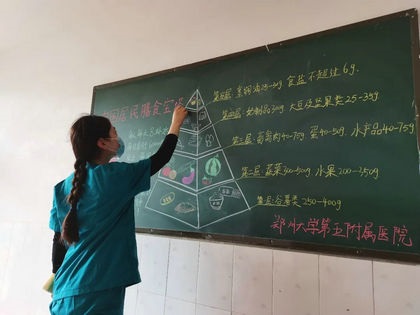 国居民膳食宝塔
第五层:烹调油25-30g 食盐不超过6g
第四层:奶制品300g 大豆及坚果类25-35g
第三层:畜禽肉40-75g 蛋40-50g 水产品40-75g
第二层:蔬菜300-500g 水果200-350g
第一层:谷薯类 250-400g
郑州大学第五附属医院